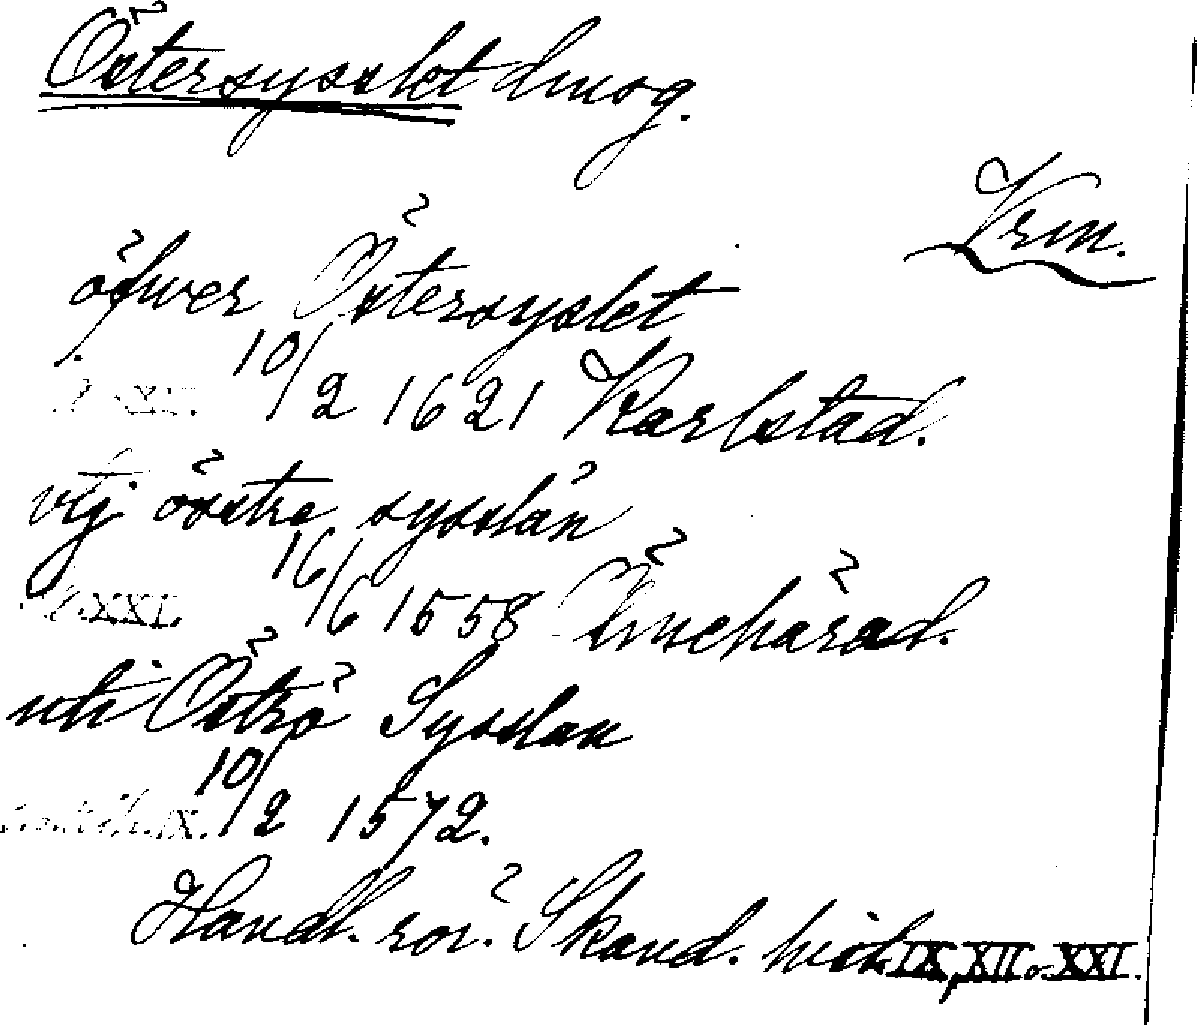 Östersysslet dmog.
Vrm.
öfwer Östersyslet
10/2 1621 Karlstad.
vtj östre sysslän
XXI. 16/6 1558 Ämehärad.
uti Öströ Sysslan
IX. 10/2 1572.
Handl. rör. Skand. hist. IX, XII o. XXI.